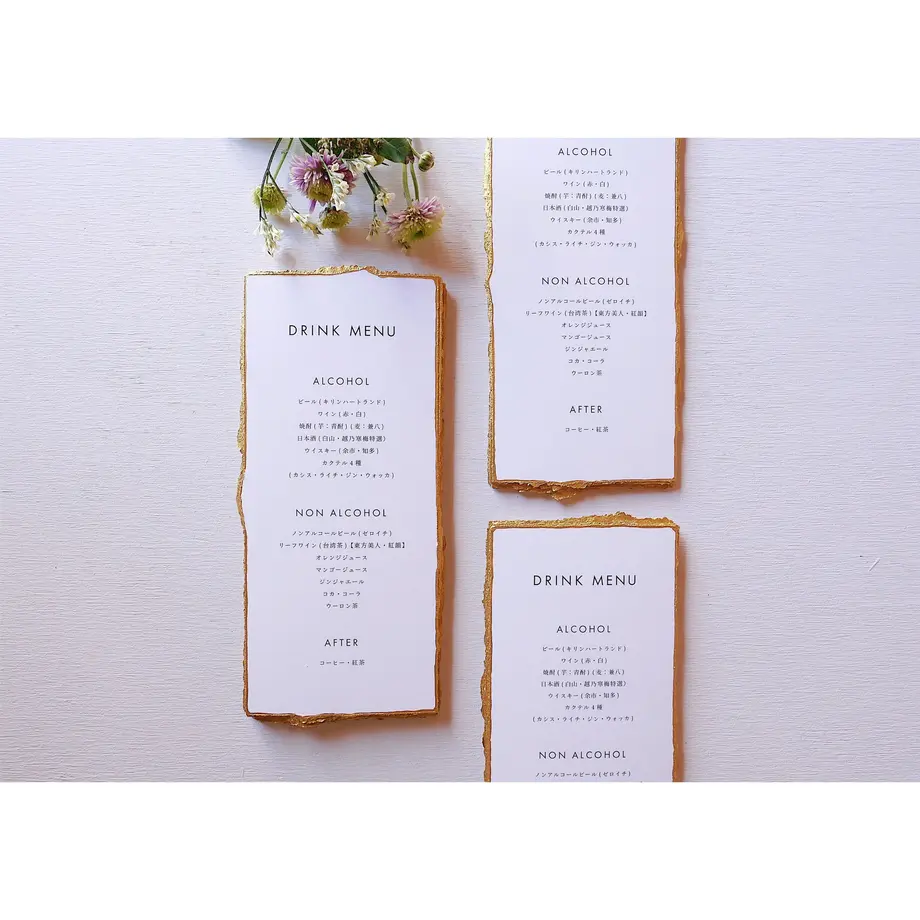 DRINK MENU
ALCOHOL
ビール(キリンハートランド)
ワイン(赤・白)
焼酎(芋:青酎)(麦:兼八)
日本酒(白山・越乃寒梅特選)
ウイスキー(余市・知多)
カクテル4種
(カシス・ライチ・ジン・ウォッカ)
NON ALCOHOL
ノンアルコールビール(ゼロイチ)
リーフワイン(台湾茶)【東方美人・紅韻】
オレンジジュース
マンゴージュース
ジンジャエール
コカ・コーラ
ウーロン茶
AFTER
コーヒー・紅茶
ALCOHOL
ビール(キリンハートランド)
ワイン(赤・白)
焼酎(芋:青酎)(麦:兼八)
日本酒(白山・越乃寒梅特選)
ウイスキー(余市・知多)
カクテル4種
(カシス・ライチ・ジン・ウォッカ)
NON ALCOHOL
ノンアルコールビール(ゼロイチ)
リーフワイン(台湾茶)【東方美人・紅韻】
オレンジジュース
マンゴージュース
ジンジャエール
コカ・コーラ
ウーロン茶
AFTER
コーヒー・紅茶
DRINK MENU
ALCOHOL
ビール(キリンハートランド)
ワイン(赤・白)
焼酎(芋:青酎)(麦:兼八)
日本酒(白山・越乃寒梅特選)
ウイスキー(余市・知多)
カクテル4種
(カシス・ライチ・ジン・ウォッカ)
NON ALCOHOL
ノンアルコールビール(ゼロイチ)